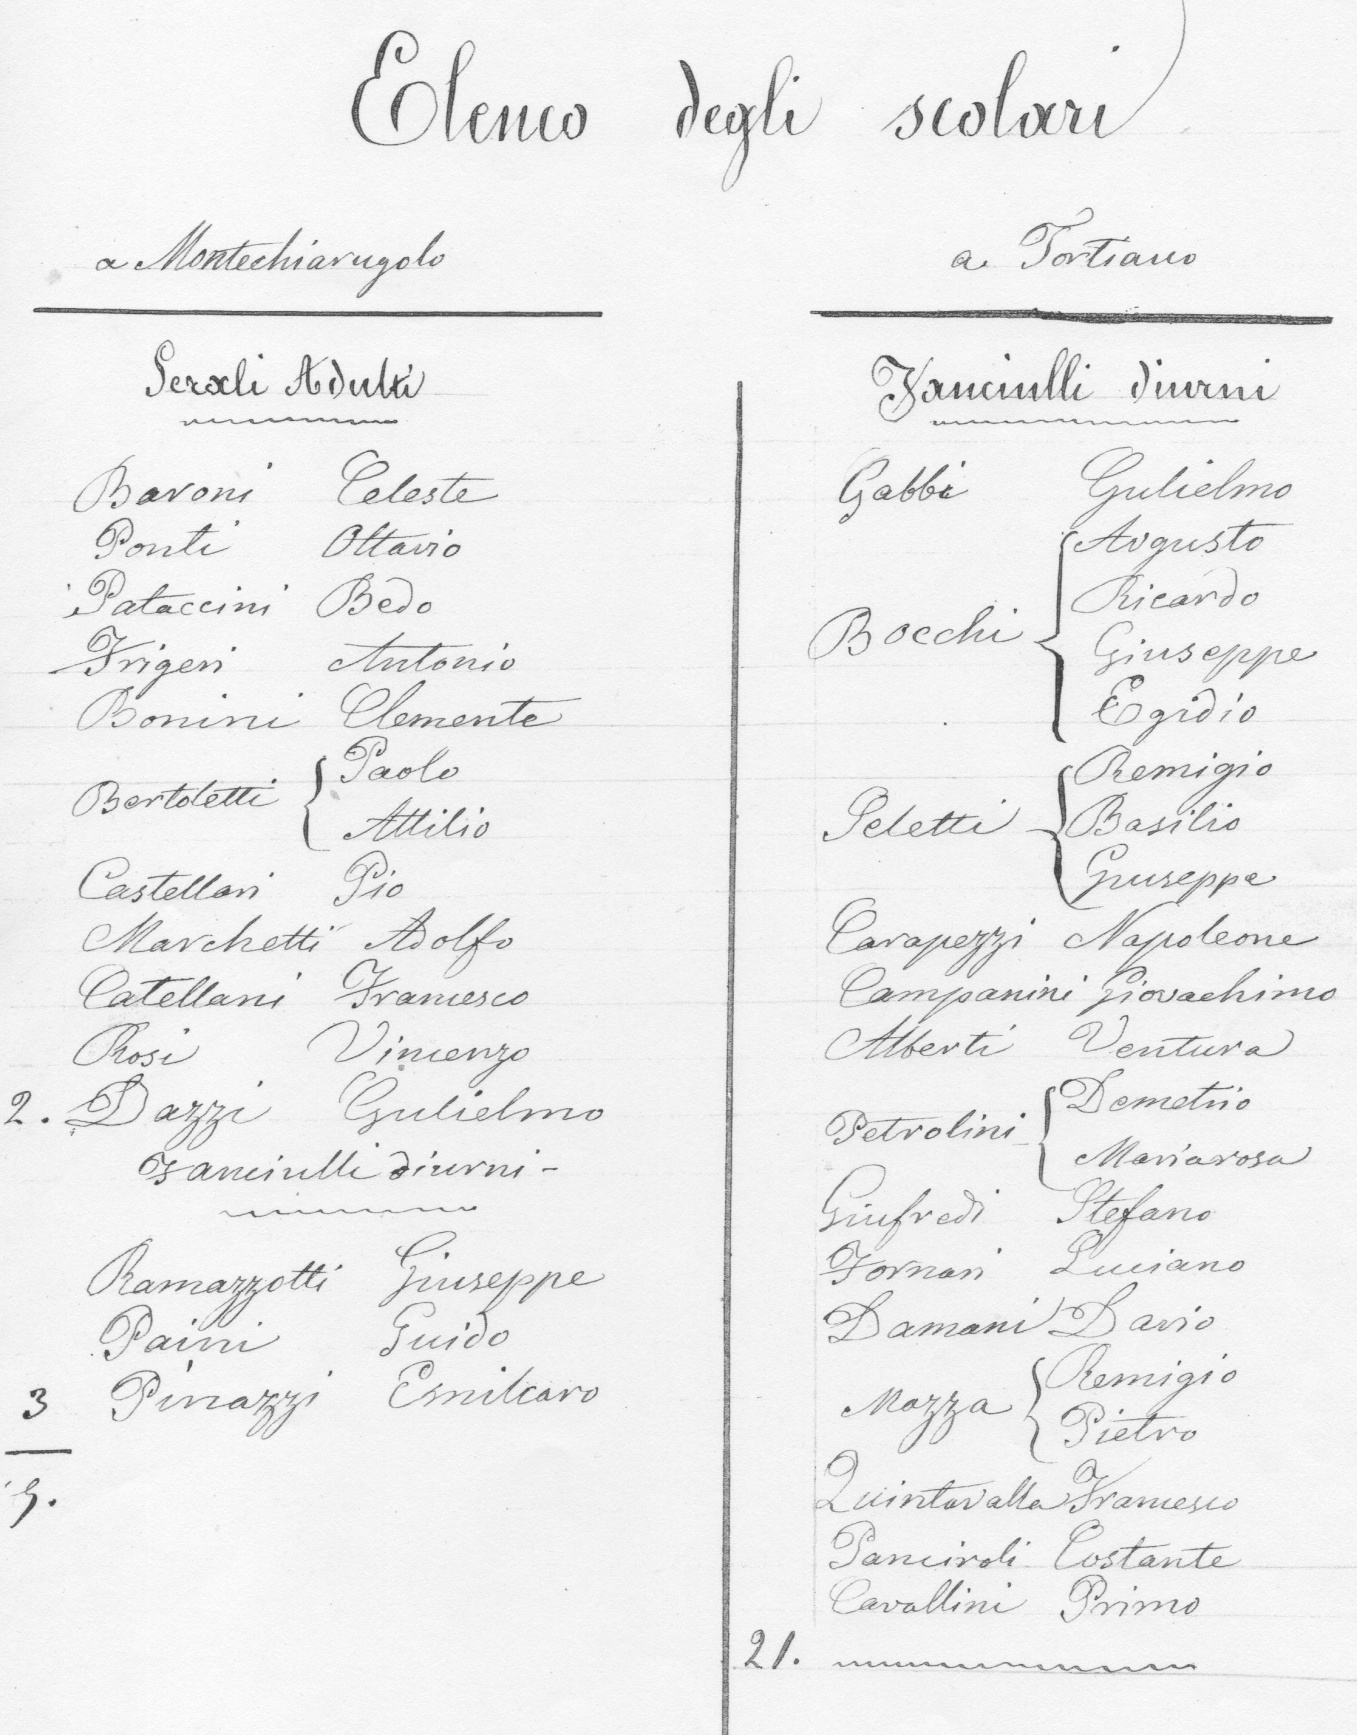 Elenco degli scolari
a Montechiarugolo
Serali Adulti
Baroni Celeste
Ponti Ottavio
Pataccini Bedo
Frigeri Antonio
Bonini Clemente
Bertoletti { Paolo
Attilio
Castellari Pio
Marchetti Adolfo
Catellani Francesco
Rosi Vincenzo
2. Dazzi Gulielmo
Fanciulli diurni -
Ramazzotti Giuseppe
Paini Guido
3 Pinazzi Emilcaro
5.
a Tortiano
Fanciulli diurni
Gabbi Gulielmo
Augusto
Ricardo
Bocchi { Giuseppe
Egidio
Remigio
Peletti { Basilio
Giuseppe
Carapezzi Napoleone
Campanini Giovachimo
Alberti Ventura
Petrolini { Demetrio
Mariarosa
Giufredi Stefano
Fornari Luciano
Damani Dario
Mazza { Remigio
Pietro
Quintavalla Francesco
Panciroli Costante
Cavallini Primo
21.